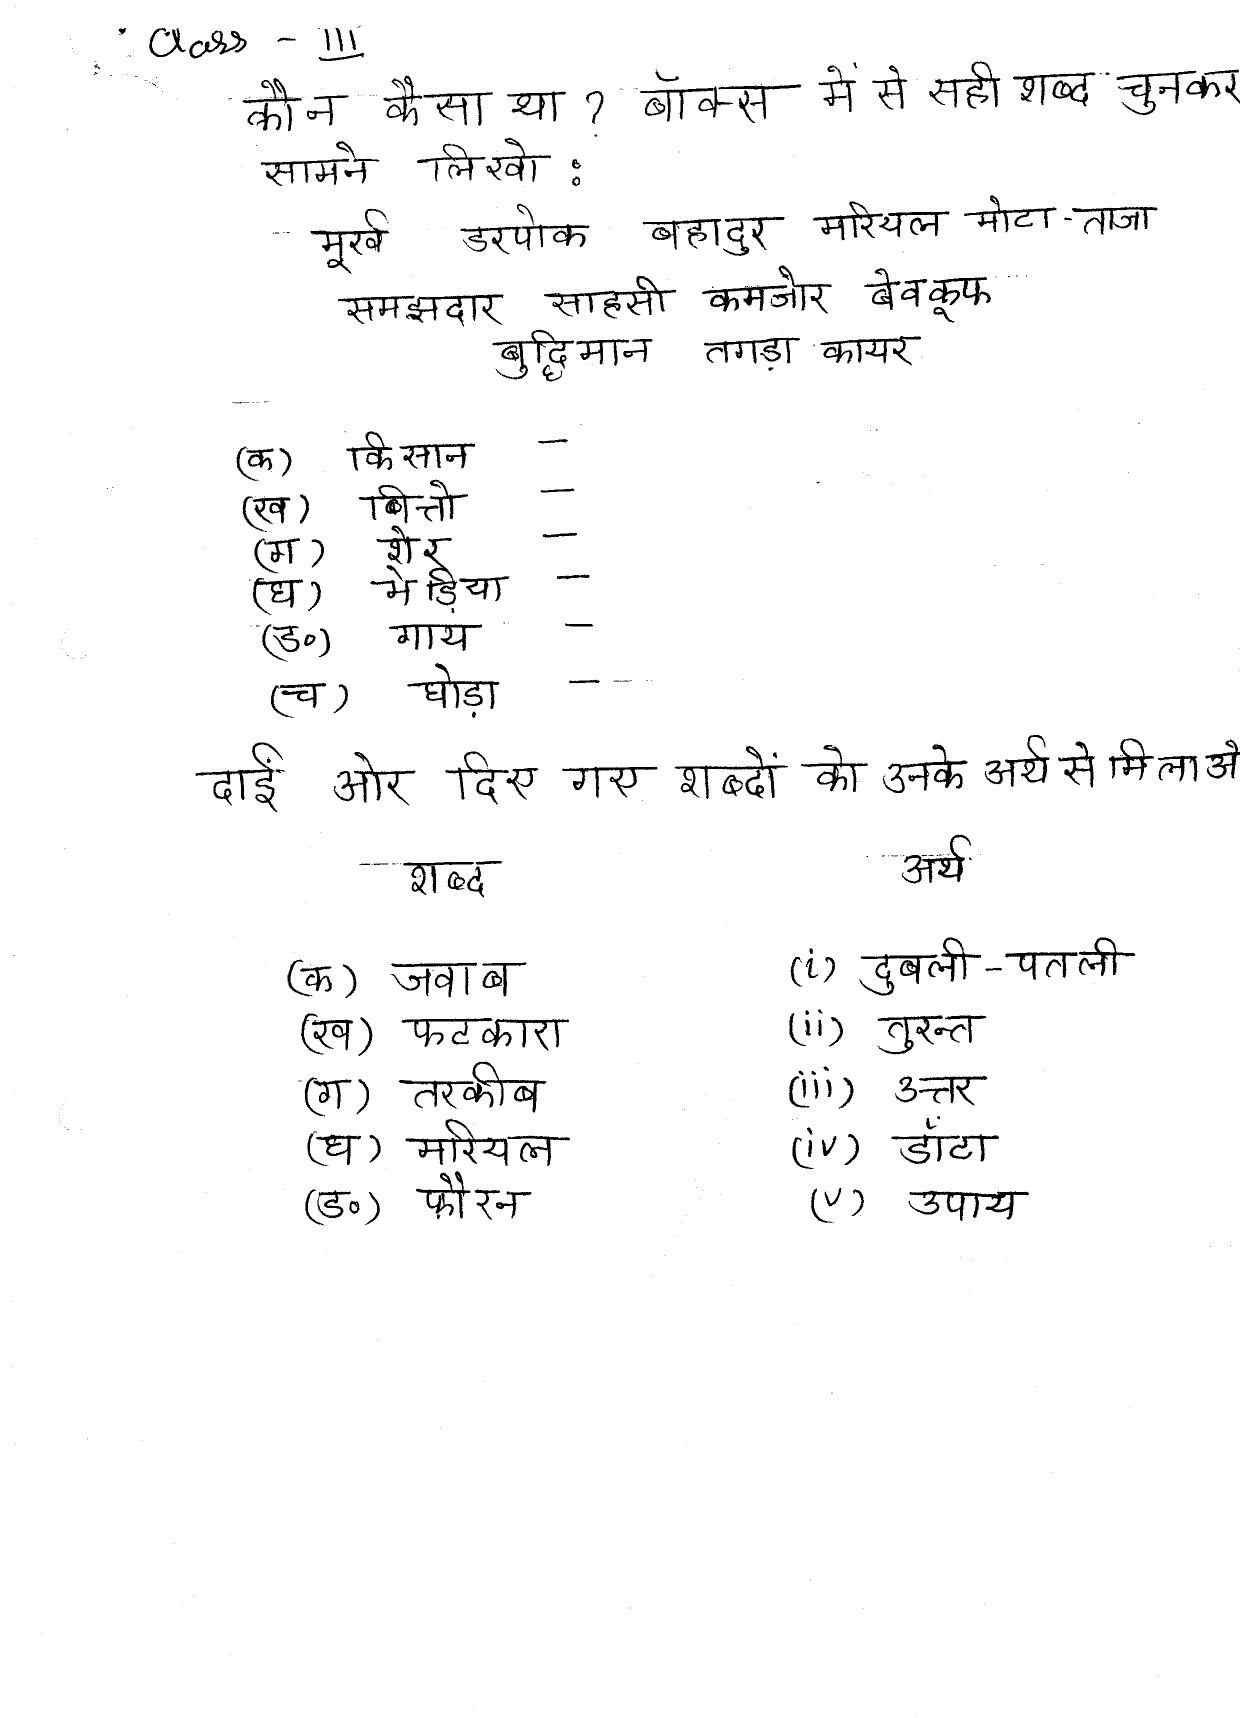 Class - III
कौन कैसा था ? बॉक्स में से सही शब्द चुनकर
सामने लिखो :
मूर्ख डरपोक बहादुर मरियल मोटा-ताजा
समझदार साहसी कमजोर बेवकूफ
बुद्धिमान तगड़ा कायर
(क) किसान -
(ख) बित्तो -
(ग) शेर -
(घ) भेड़िया -
(ड०) गाय -
(च) घोड़ा -
दाईं ओर दिए गए शब्दों को उनके अर्थ से मिलाओ
शब्द अर्थ
(क) जवाब (i) दुबली-पतली
(ख) फटकारा (ii) तुरन्त
(ग) तरकीब (iii) उत्तर
(घ) मरियल (iv) डाँटा
(ड०) फ़ौरन (v) उपाय